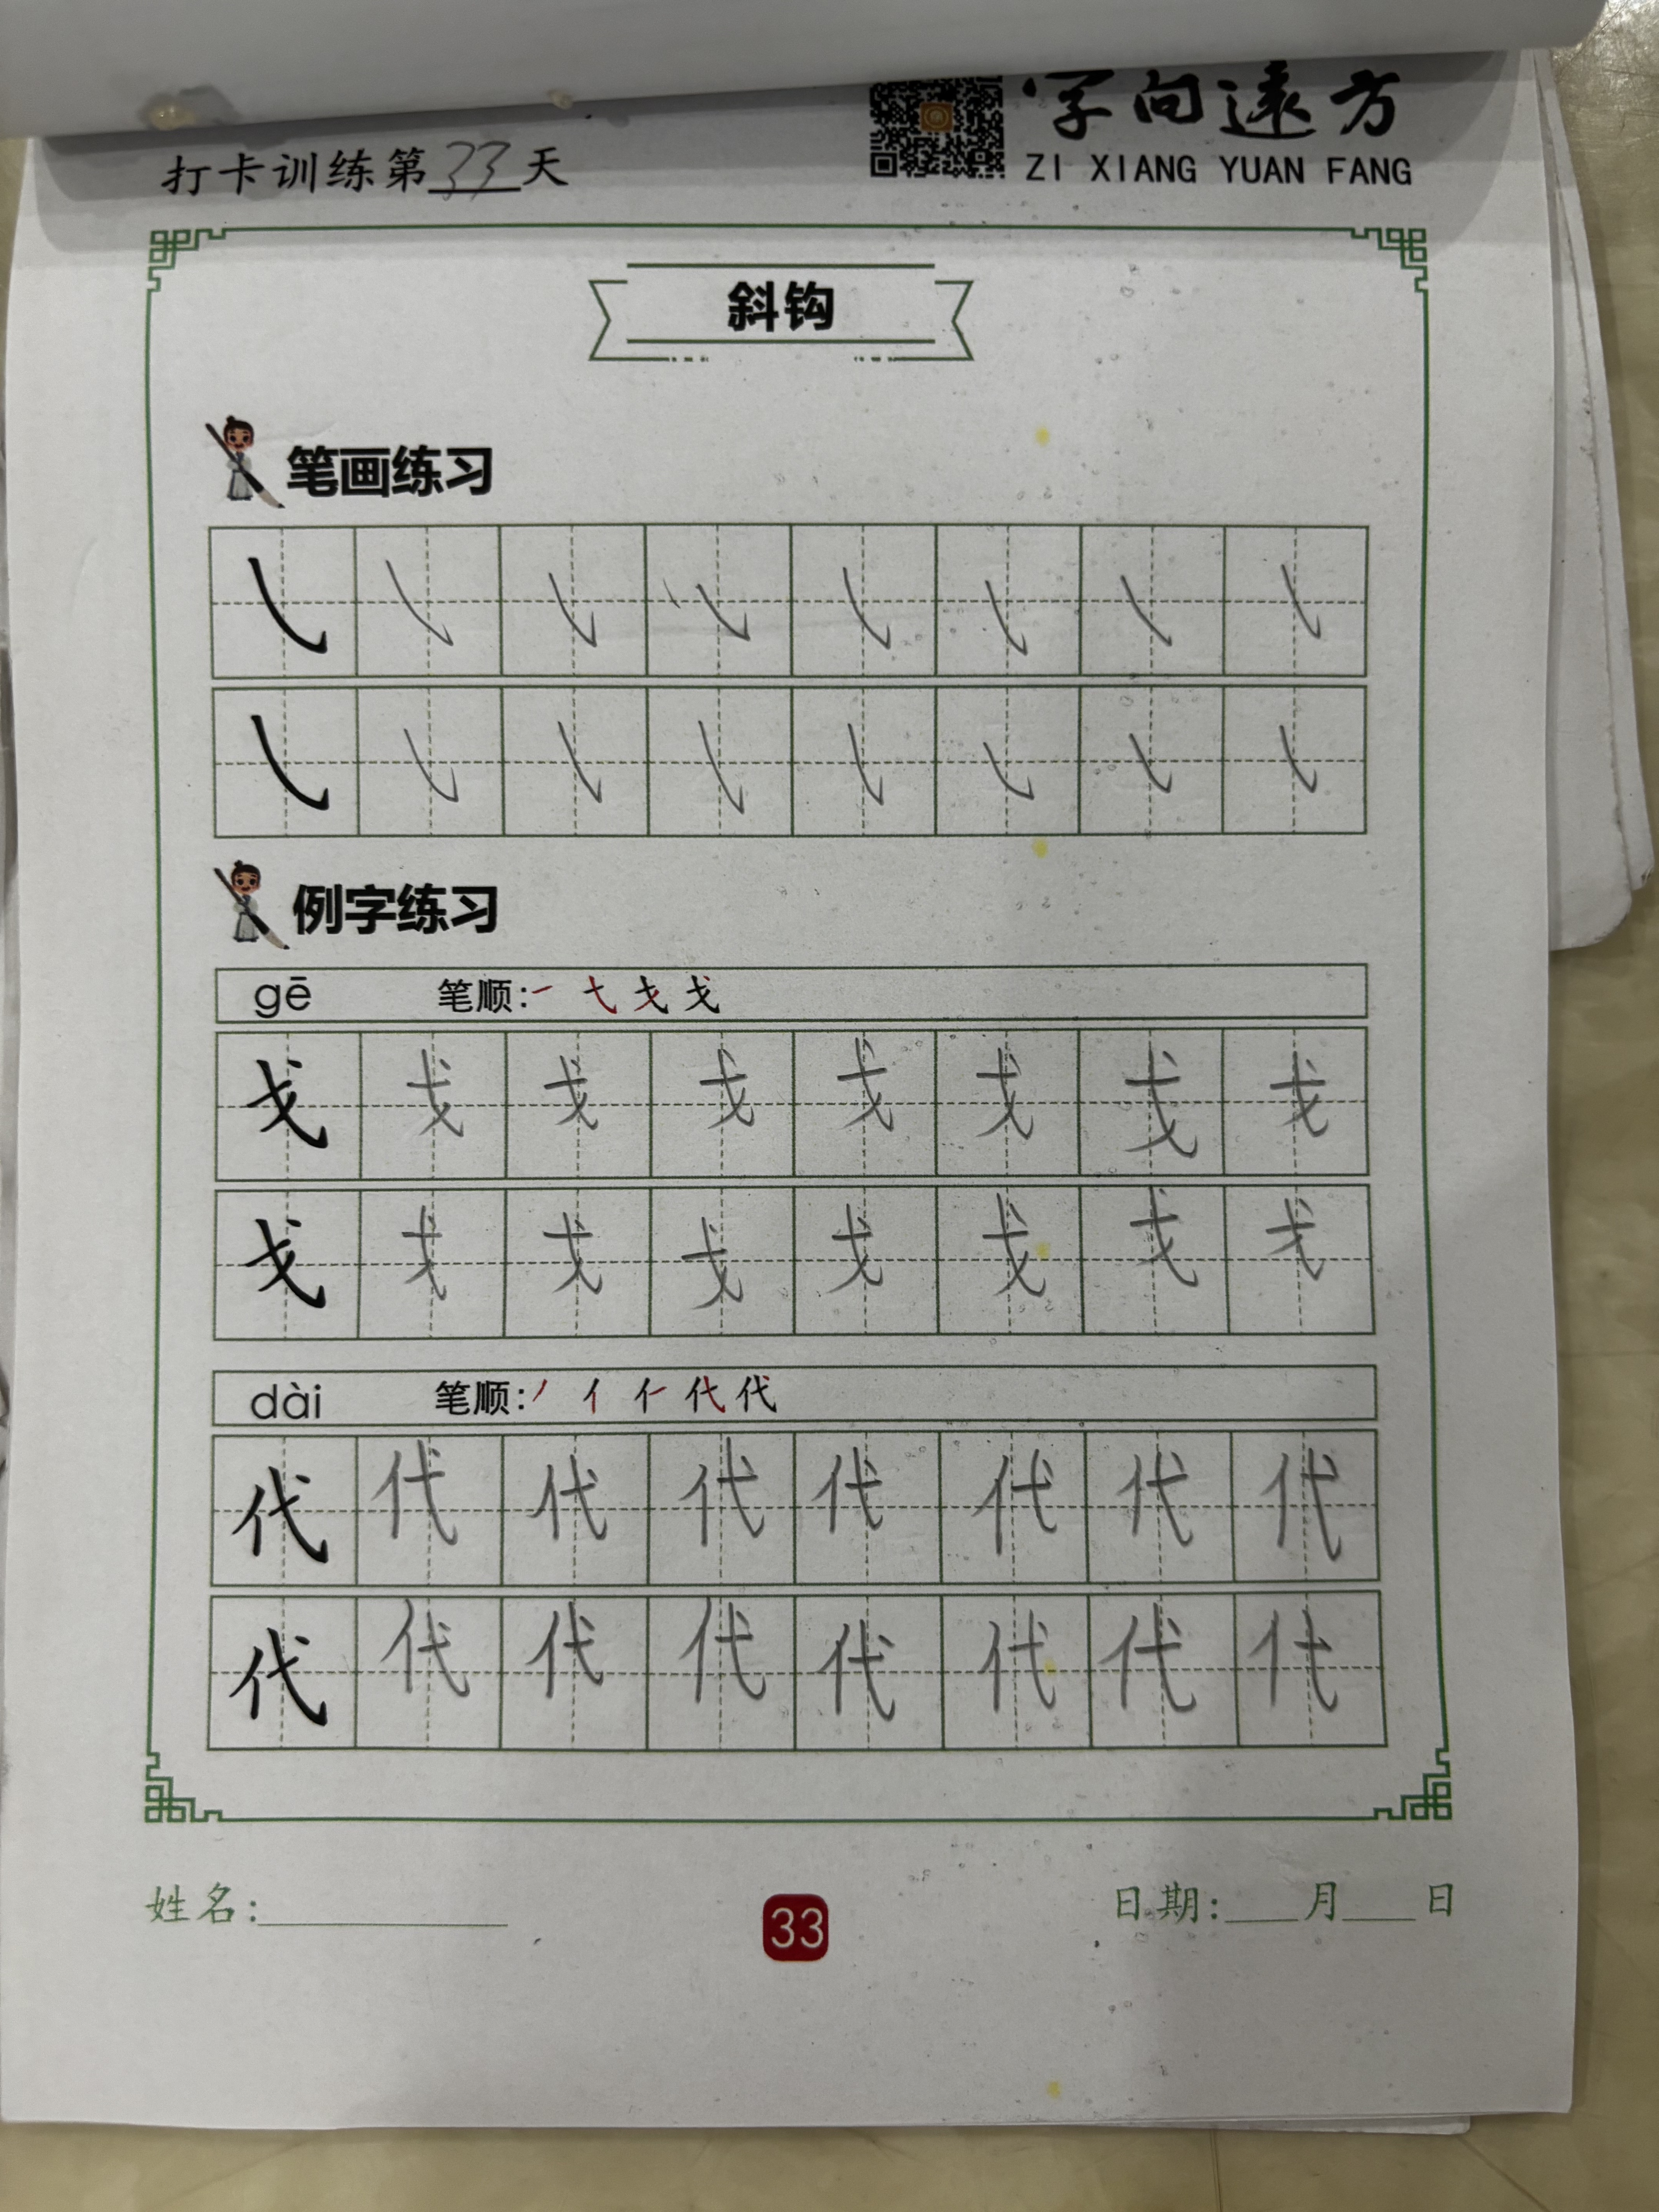 字向遠方
打卡训练第33天
ZI XIANG YUAN FANG
斜钩
笔画练习
㇂㇂㇂㇂㇂㇂㇂㇂
㇂㇂㇂㇂㇂㇂㇂㇂
例字练习
gē 笔顺:㇀ 弋 戈 戈
戈戈戈戈戈戈戈戈
戈戈戈戈戈戈戈戈
dài 笔顺:丿 亻 仁 代 代
代代代代代代代代
代代代代代代代代
姓名:
33
日期: 月 日